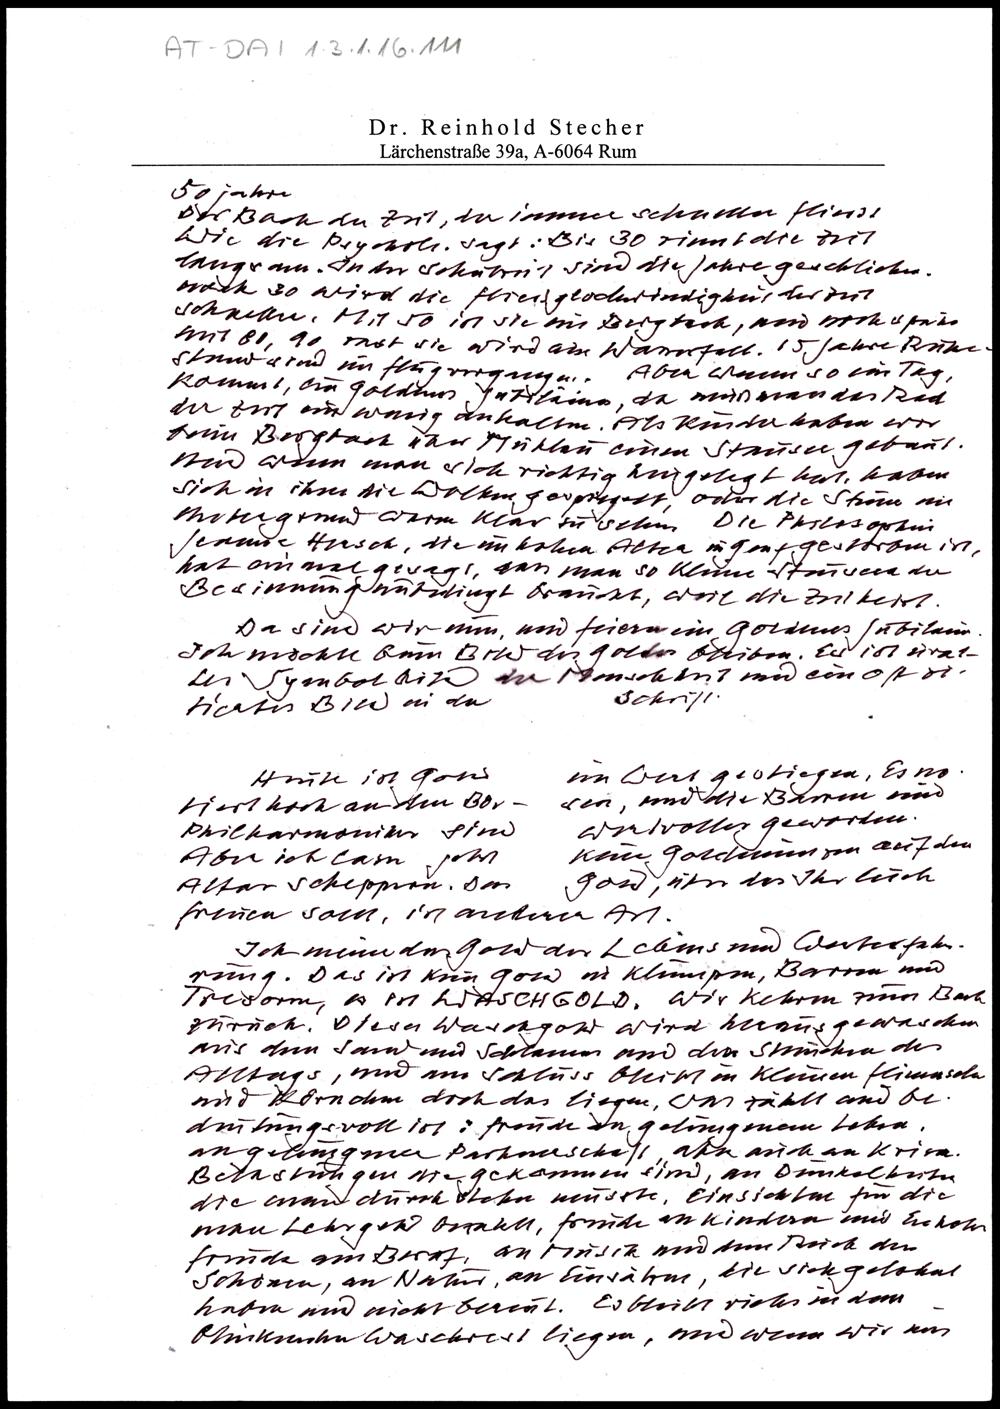 AT-DAI 1.3.1.16.111
Dr. Reinhold Stecher
Lärchenstraße 39a, A-6064 Rum
50 jahre
Der Bach der Zeit, der immer schneller fliesst
Wie die Psycholo. sagt: Bis 30 rinnt die Zeit
langsam. In der Schulzeit sind die Jahre geschlichen.
nach 30 wird die fliessgeschwindigkeit der zeit
schneller. Mit 50 ist sie ein Bergbach, und noch später
mit 80, 90 rast sie wird ein Wasserfall. 15 Jahre Ruhe-
stand sind im flug vergangen. Aber wenn so ein Tag,
kommt, ein goldenes Jubiläum, da muss man das Rad
der Zeit ein wenig anhalten. Als Kinder haben wir
beim Bergbach über Mühlau einen Stausee gebaut.
Und wenn man sich richtig hingelegt hat, haben
sich in ihm die Wolken gespiegelt, oder die Steine am
grund waren klar zu sehen Die Philosophin
Jeanne Hersch, die im hohen Alter in genf gestorben ist,
hat einmal gesagt, dass man so kleine Stauseen der
Besinnung unbedingt braucht, weil die Zeit
Da sind wir nun, und feiern ein Goldenes Jubiläum.
Ich möchte beim Bild des goldes bleiben. Es ist ural-
tes Symbolbild der Menschheit und ein oft zi-
tiertes Bild in der Schrift.
Heute ist Gold im Wert gestiegen, Es no-
tiert hoch an den Bör- sen, und die Barren und
Philharmoniker sind wertvoller geworden.
Aber ich lasse jetzt keine Goldmünzen auf den
Altar scheppern. Das Gold, über das Ihr Euch
freuen sollt, ist anderer Art.
Ich meine das Gold der Lebens und Werterfah-
rung. Das ist kein Gold in Klumpen, Barren und
Tresoren, es ist WASCHGOLD. Wir kehren zum Bach
zurück. Dieses Waschgold wird herausgewaschen
aus dem Sand und Schlamm und den Steinchen des
Alltags, und am Schluss bleibt in kleinen flimmerchen
und Körnchen doch das liegen, was zählt und be-
deutungsvoll ist: freude an gelungenem Leben,
an gelungener Partnerschaft, aber auch an Krisen.
Belastungen die gekommen sind, an Dunkelheiten
die man durchstehen musste, Einsichten für die
man Lehrgeld bezahlt, freude an Kindern und Enkeln
freude am Beruf, an Musik und dem Reich des
Schönen, an Natur, an Einsätzen, die sich gelohnt
haben und nicht bereut. Es bleibt vieles in dem
blinkenden Waschrest liegen, und wenn wir uns